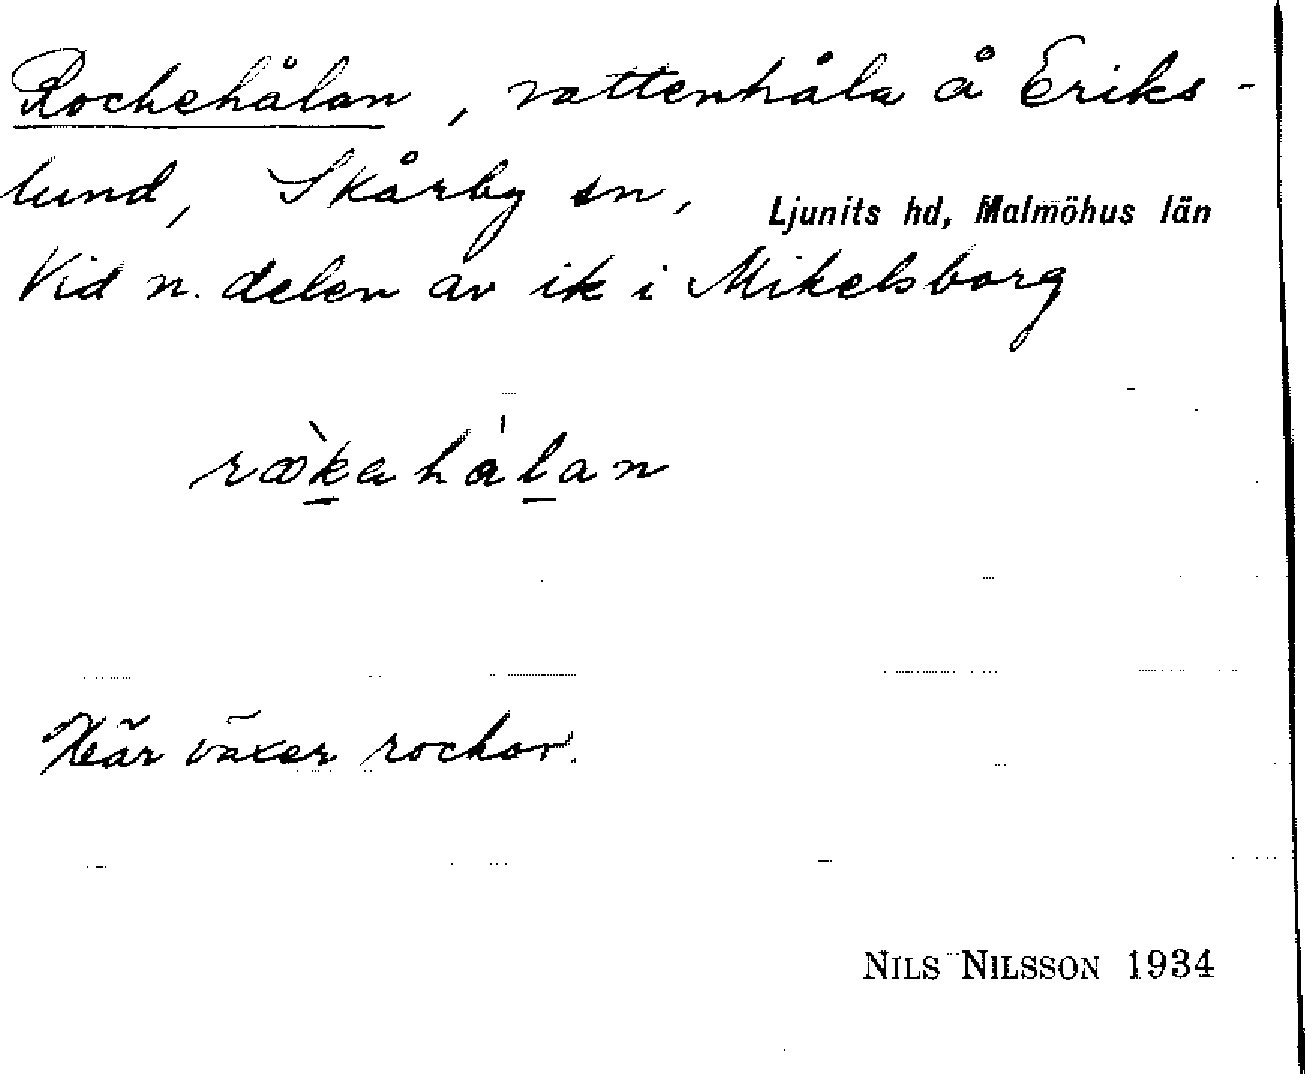 Rockehålan, vattenhåla å Eriks-
lund, Skårby sn, Ljunits hd, Malmöhus län
Vid n. delen av ik i Mikelsborg
ræ̀kahålan
Här växer rockor.
NILS NILSSON 1934